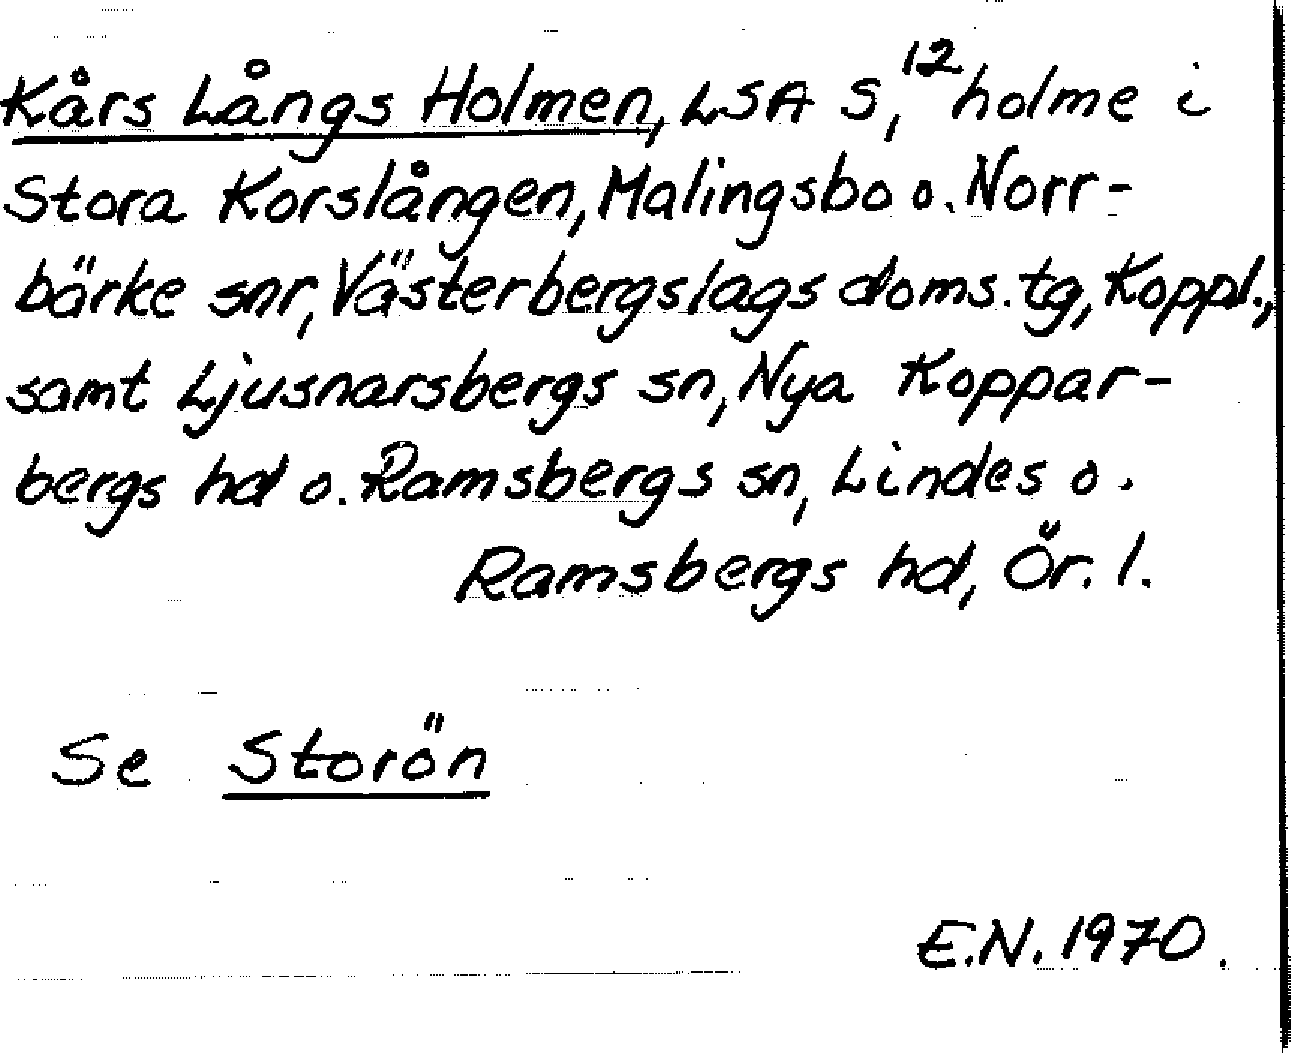 Kårs Långs Holmen, LSA S,¹² holme i
Stora Korslången, Malingsbo o. Norr-
bärke snr, Västerbergslags doms. tg, Koppl.,
samt Ljusnarsbergs sn, Nya Koppar-
bergs hd o. Ramsbergs sn, Lindes o.
Ramsbergs hd, Ör. l.
Se Storön
E.N. 1970.